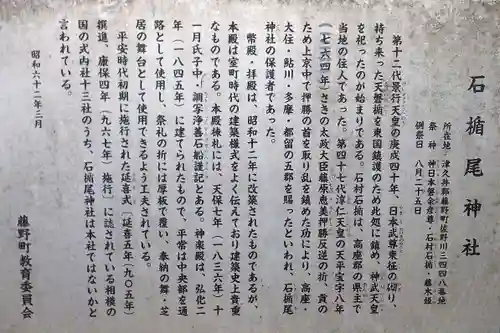 石楯尾神社
所在地 津久井郡藤野町佐野川三四四八番地
祭神 神日本磐余彦尊・石村石楯・藤木姫
例祭日 八月二十五日
第十二代景行天皇の庚戌四十年、日本武尊東征の砌り、
持ち来った天磐楯を東国鎮護のため此処に鎮め、神武天皇
を祀ったのが始まりである。石村石楯は、高座郡の県主で
当地の住人であった。第四十七代淳仁天皇の天平宝字八年
(七六四年)さきの太政大臣藤原恵美押勝反逆の折、貢の
ため上京中で押勝の首を取り乱を鎮めた功により、高座・
大住・鮎川・多摩・都留の五郡を賜ったといわれ、石楯尾
神社の保護者であった。
幣殿・拝殿は、昭和十二年に改築されたものであるが、
本殿は室町時代の建築様式をよく伝えており建築史上貴重
なものである。本殿棟札には、天保七年(一八三六年)十
一月氏子中・調写浄善石船謹記とある。神楽殿は、弘化二
年(一八四五年)に建てられたもので、平常は中央部を通
路として使用し、祭礼の折には厚板で覆い、奉納の舞・芝
居の舞台として使用できるよう工夫されている。
平安時代初期に施行された延喜式〔延喜五年(九〇五年)
撰進、康保四年(九六七年)施行〕に誌されている相模の
国の式内社十三社のうち、石楯尾神社は本社ではないかと
言われている。
昭和六十二年三月
藤野町教育委員会